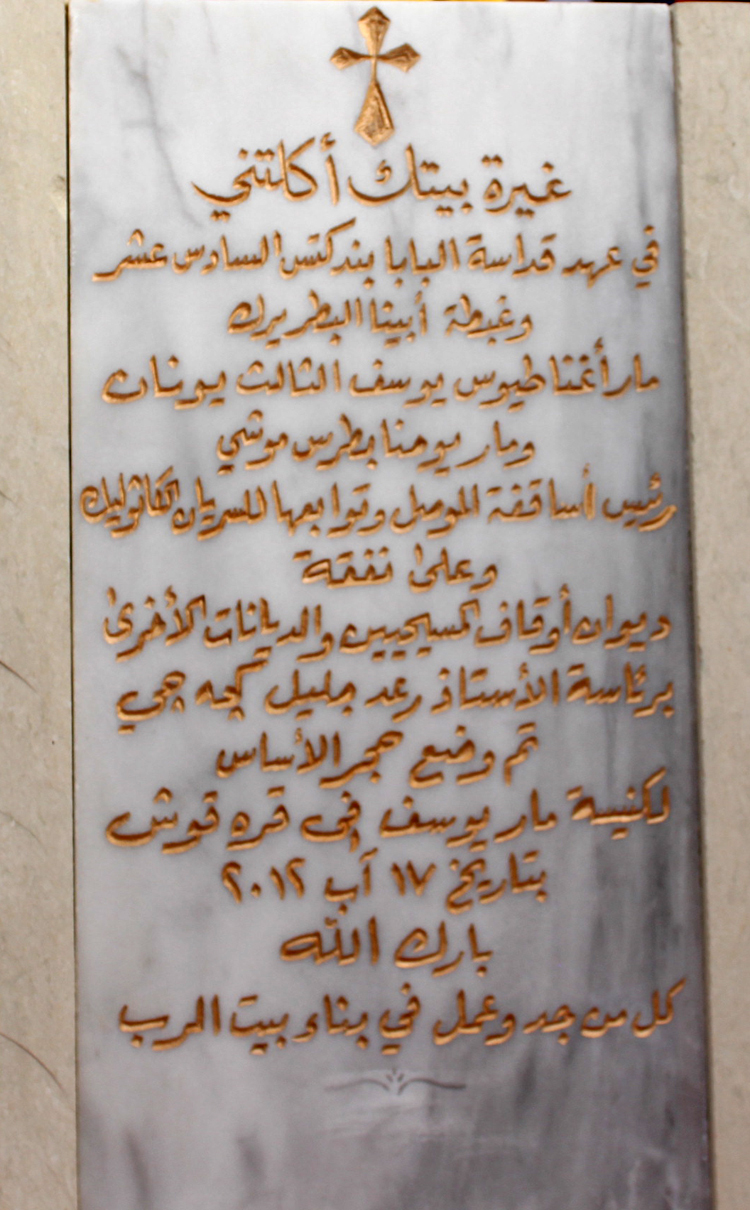 غيرة بيتك أكلتني
في عهد قداسة البابا بندكتس السادس عشر
وغبطة أبينا البطريرك
مار أغناطيوس يوسف الثالث يونان
ومار يوحنا بطرس موشي
رئيس أساقفة الموصل وتوابعها للسريان الكاثوليك
وعلى نفقة
ديوان أوقاف المسيحيين والديانات الأخرى
برئاسة الأستاذ رعد جليل كجه جي
تم وضع حجر الأساس
لكنيسة مار يوسف في قره قوش
بتاريخ ١٧ آب ٢٠١٢
بارك الله
كل من جد وعمل في بناء بيت الرب